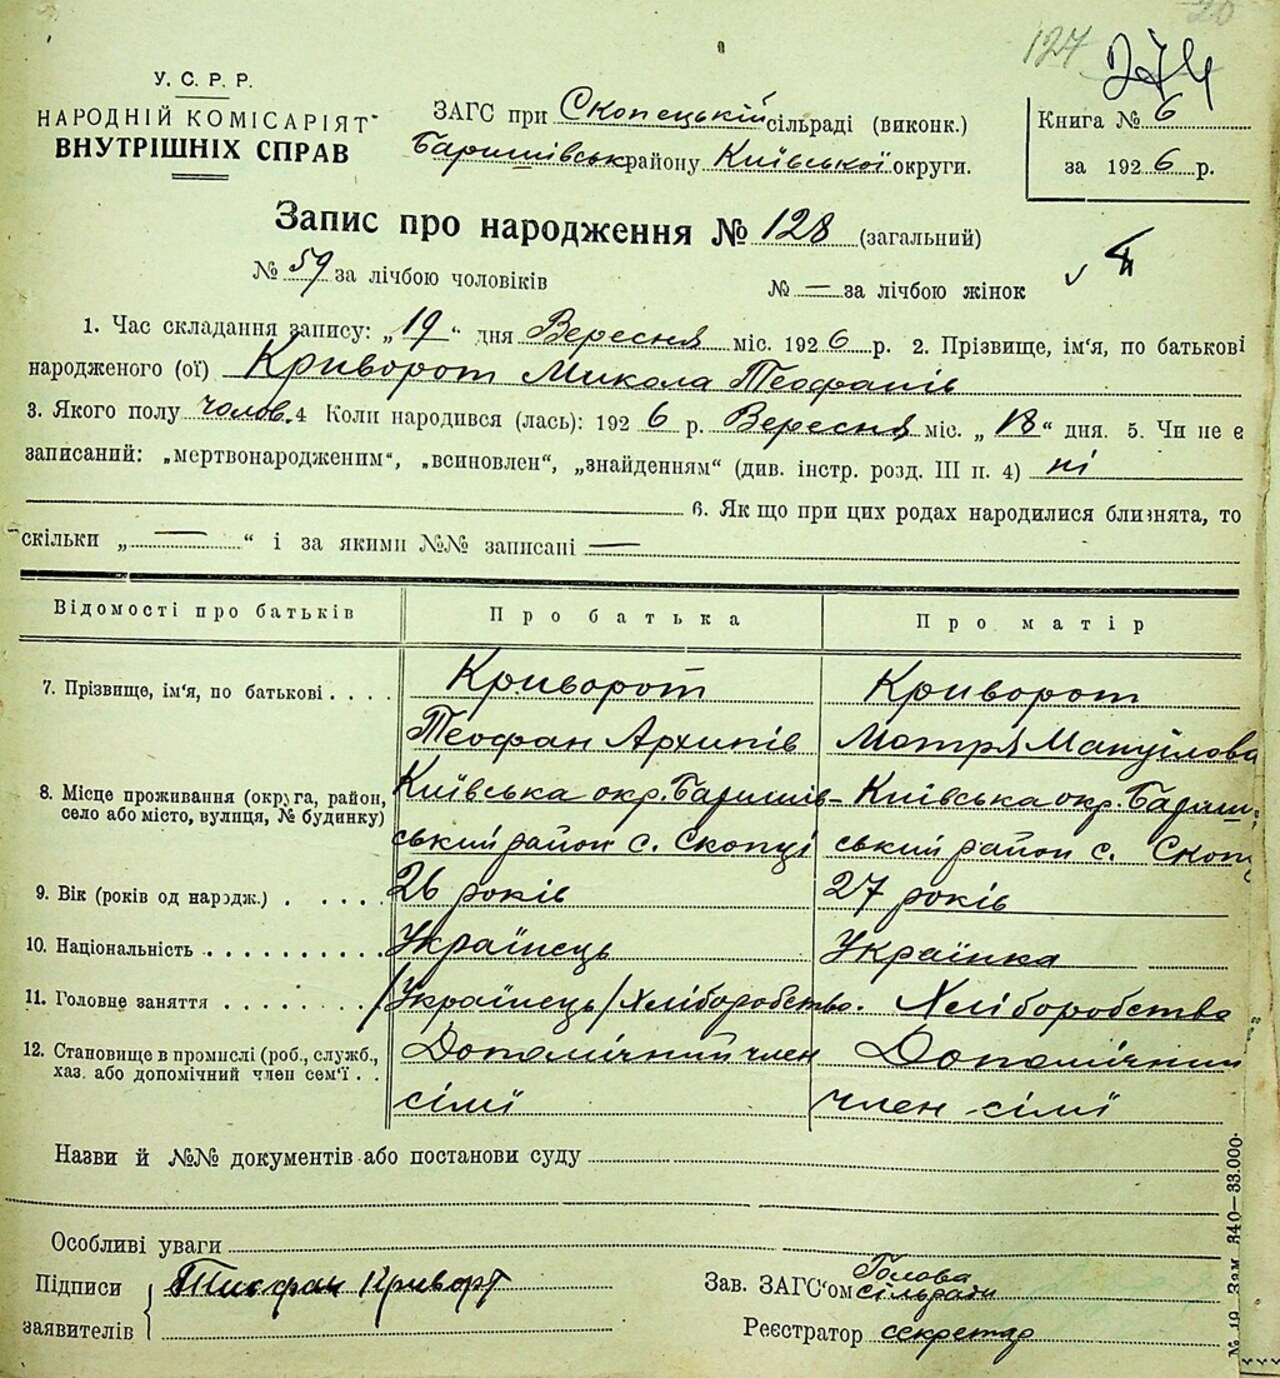 127 274
У. С. Р. Р.
НАРОДНІЙ КОМІСАРІЯТ
ВНУТРІШНІХ СПРАВ
ЗАГС при Скопецькій сільраді (виконк.)
Баришівськ району Київської округи.
Книга № 6
за 1926 р.
Запис про народження № 128 (загальний)
№ 59 за лічбою чоловіків № — за лічбою жінок
1. Час складання запису: „19“ дня Вересня міс. 1926 р. 2. Прізвище, ім‘я, по батькові
народженого (ої) Криворот Микола Теофанів
3. Якого полу чолов. 4 Коли народився (лась): 1926 р. Вересня міс. „18“ дня. 5. Чи не є
записаний: „мертвонародженим“, „всиновлен“, „знайденням“ (див. інстр. розд. III п. 4) ні
6. Якщо при цих родах народилися близнята, то
скільки „—“ і за якими №№ записані —
Відомості про батьків Про батька Про матір
7. Прізвище, ім‘я, по батькові . . . . Криворот Криворот
Теофан Архипів Мотря Мануілова
8. Місце проживання (округа, район, Київська окр. Баришів- Київська окр. Бариш
село або місто, вулиця, № будинку)
ський район с. Скопці ський район с. Скопц
9. Вік (років од народж.) . . . . . 26 років 27 років
10. Національність . . . . . . . . . . Українець Українка
11. Головне заняття . . . . . . . . /Українець/ Хліборобство. Хліборобство
12. Становище в промислі (роб., служб., Допомічний член Допомічний
хаз. або допомічний член сем‘ї . .
сімї член сімї
Назви й №№ документів або постанови суду
Особливі уваги
Підписи Тиофан Криворт
заявителів
Зав. ЗАГС‘ом Голова
сільради
Реєстратор секретар
№ 19 Зам. 340—33.000.